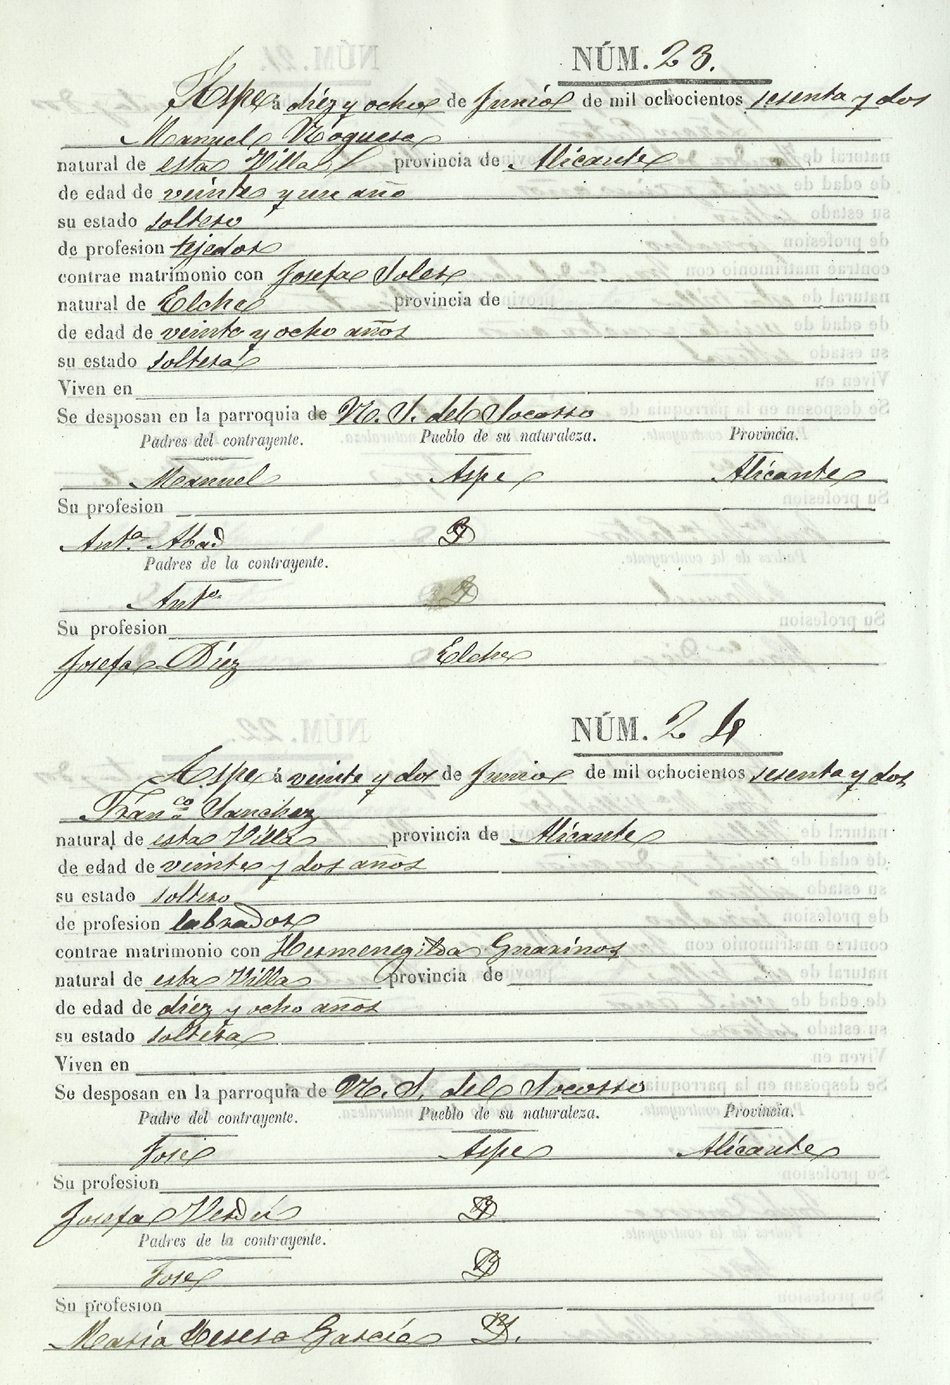 NÚM. 23.
Aspe á diez y ocho de Junio de mil ochocientos sesenta y dos
Manuel Noguera
natural de esta Villa provincia de Alicante
de edad de veinte y un año
su estado soltero
de profesion tejedor
contrae matrimonio con Josefa Soler
natural de Elche provincia de
de edad de veinte y ocho años
su estado soltera
Viven en
Se desposan en la parroquia de N. S. del Socorro
Padres del contrayente. Pueblo de su naturaleza. Provincia.
Manuel Aspe Alicante
Su profesion
Antª. Abad D
Padres de la contrayente.
Antº. D
Su profesion
Josefa Diez Elche
NÚM. 24
Aspe á veinte y dos de Junio de mil ochocientos sesenta y dos
Franco Sanchez
natural de esta Villa provincia de Alicante
de edad de veinte y dos años
su estado soltero
de profesion labrador
contrae matrimonio con Hermenegilda Guarinos
natural de esta Villa provincia de
de edad de diez y ocho años
su estado soltera
Viven en
Se desposan en la parroquia de N. S. del Socorro
Padre del contrayente. Pueblo de su naturaleza. Provincia.
José Aspe Alicante
Su profesion
Josefa Verdú D
Padres de la contrayente.
Jose D
Su profesion
María Teresa García D.